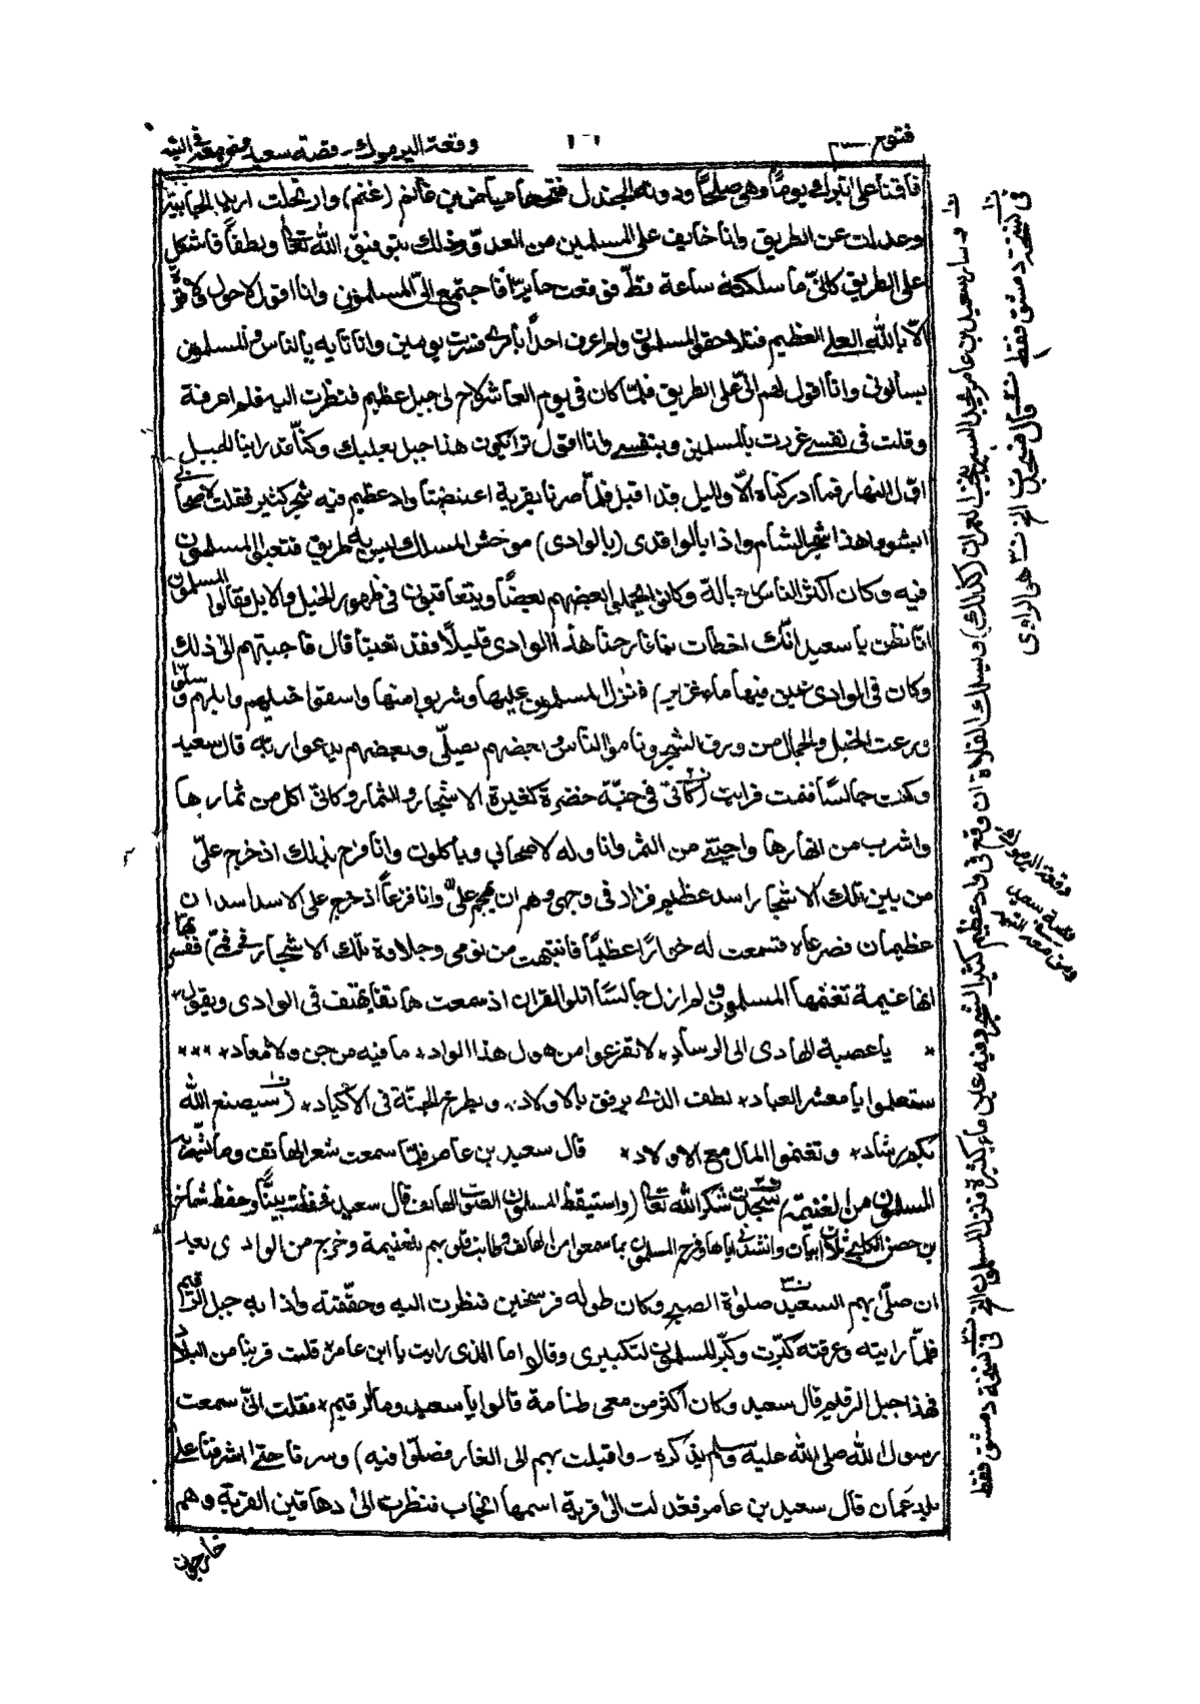 فتوح
وقعة اليرموك - قصة سعيد ومن معه في التيه
فاقمنا على تبوك يوما وهي صلحا ودومة الجندل فتحها عياض بن غانم (غنم) وارتحلت اريد الجابية
وعدلت عن الطريق وانا خايف على المسلمين من العدو وذلك بتوفيق الله تعالى ولطفا فاشكل
على الطريق كاني ما سلكته ساعة قط فوقعت حايرا فاجتمع الى المسلمون وانا اقول لا حول ولا قوة
الا بالله العلي العظيم فتلاحق المسلمون ولم اعرف احدا بامري فسرت يومين وانا تايه بالناس والمسلمون
يسالوني وانا اقول لهم اني على الطريق فلما كان في يوم العاشر لاح لي جبل عظيم فنظرت اليه فلم اعرفه
وقلت في نفسي غررت بالمسلمين وبنفسي وانا اقول ترا يكون هذا جبل بعلبك وكنا قد راينا الجبل
اول النهار فما ادركناه الا والليل قد اقبل فلما صرنا بقربه اعترضنا واد عظيم فيه شجر كثير فقلت لاصحابي
ابشروا هذا شجر الشام واذا بالواقدي (بالوادي) موحش المسلك ليس به طريق فتعلق المسلمون
فيه وكان اكثر الناس رجالة وكانوا يحملوا بعضهم بعضا ويتعاقبون في ظهور الخيل والابل وقالوا المسلمون
انا نظن يا سعيد انك اخطات بنا فارحنا هذا الوادي قليلا فقد تعبنا قال فاجبتهم الى ذلك
وكان في الوادي عين فيها ماء غزير) فنزل المسلمون عليها وشربوا منها واسقوا خيلهم وابلهم وسلوا
ورعت الخيل والجمال من ورق الشجر وناموا الناس وبعضهم يصلي وبعضهم يدعوا ربه قال سعيد
وكنت جالسا فنمت فرايت (كاني في جنة خضرة كثيرة الاشجار والثمار وكاني اكل من ثمارها
واشرب من انهارها واجتني من الثمر واناوله لاصحابي وياكلون وانا فرح بذلك اذ خرج علي
من بين تلك الاشجار اسد عظيم فزاد في وجهي وهم ان يهجم علي وانا فزعا اذ خرج على الاسد اسدان
عظيمان فصرعاه فسمعت له خوارا عظيما فانتبهت من نومي وحلاوة تلك الاشجار في فمي) ففسرتها
انها غنيمة تغنمها المسلمون ولم ازل جالسا اتلوا القران اذ سمعت هاتفا يهتف في الوادي ويقول
* يا عصبة الهادي الى الرشاد * لا تفزعوا من هول هذا الواد * ما فيه من جن ولا معاد * * * *
ستعلموا يا معشر العباد * لطف الذي يرفق بالاولاد * ويطرح الجنة في الاكباد * (سيصنع الله
بكم رشاد * وتغنموا المال مع الاولاد * قال سعيد بن عامر فلما سمعت شعر الهاتف وما اتى به
المسلمون من الغنيمة) سجدت شكر الله تعالى (واستيقظ المسلمون لصوت الهاتف قال سعيد فحفظت بيتا وحفظ شماخ
بن حصن الكلبي ثلاث ابيات وانشدني اياها وفرح المسلمون بما سمعوا من الهاتف وطابت قلوبهم بالغنيمة وخرج من الوادي بعد
ان صلى بهم السعيد صلوة الصبح وكان طوله فرسخين فنظرت اليه وحققته واذا به جبل الرقيم
فلما رايته وعرفته كبرت وكبر المسلمون لتكبيري وقالوا ما الذي رايت يا ابن عامر قلت قربنا من البلاد
فهذا جبل الرقيم قال سعيد وكان اكثر من معي طنامة قالوا يا سعيد وما الرقيم * فقلت اني سمعت
رسول الله صلى الله عليه وسلم يذكره - واقبلت بهم الى الغار فصلوا فيه) وسرنا حتى اشرفنا على
بلد عمان قال سعيد بن عامر فعدلت الى قرية اسمها الجناب فنظرت الى دهاقين القرية وهم
خارجون
وسار سعيد بن عامر
وفيه عين ماء كثيرة فنزل المسلمون الخ في نسخة دمشق فقط
في نسخة دمشق فقط
هي الراوي
وقعة اليرموك
قصة سعيد
ومن معه في التيه